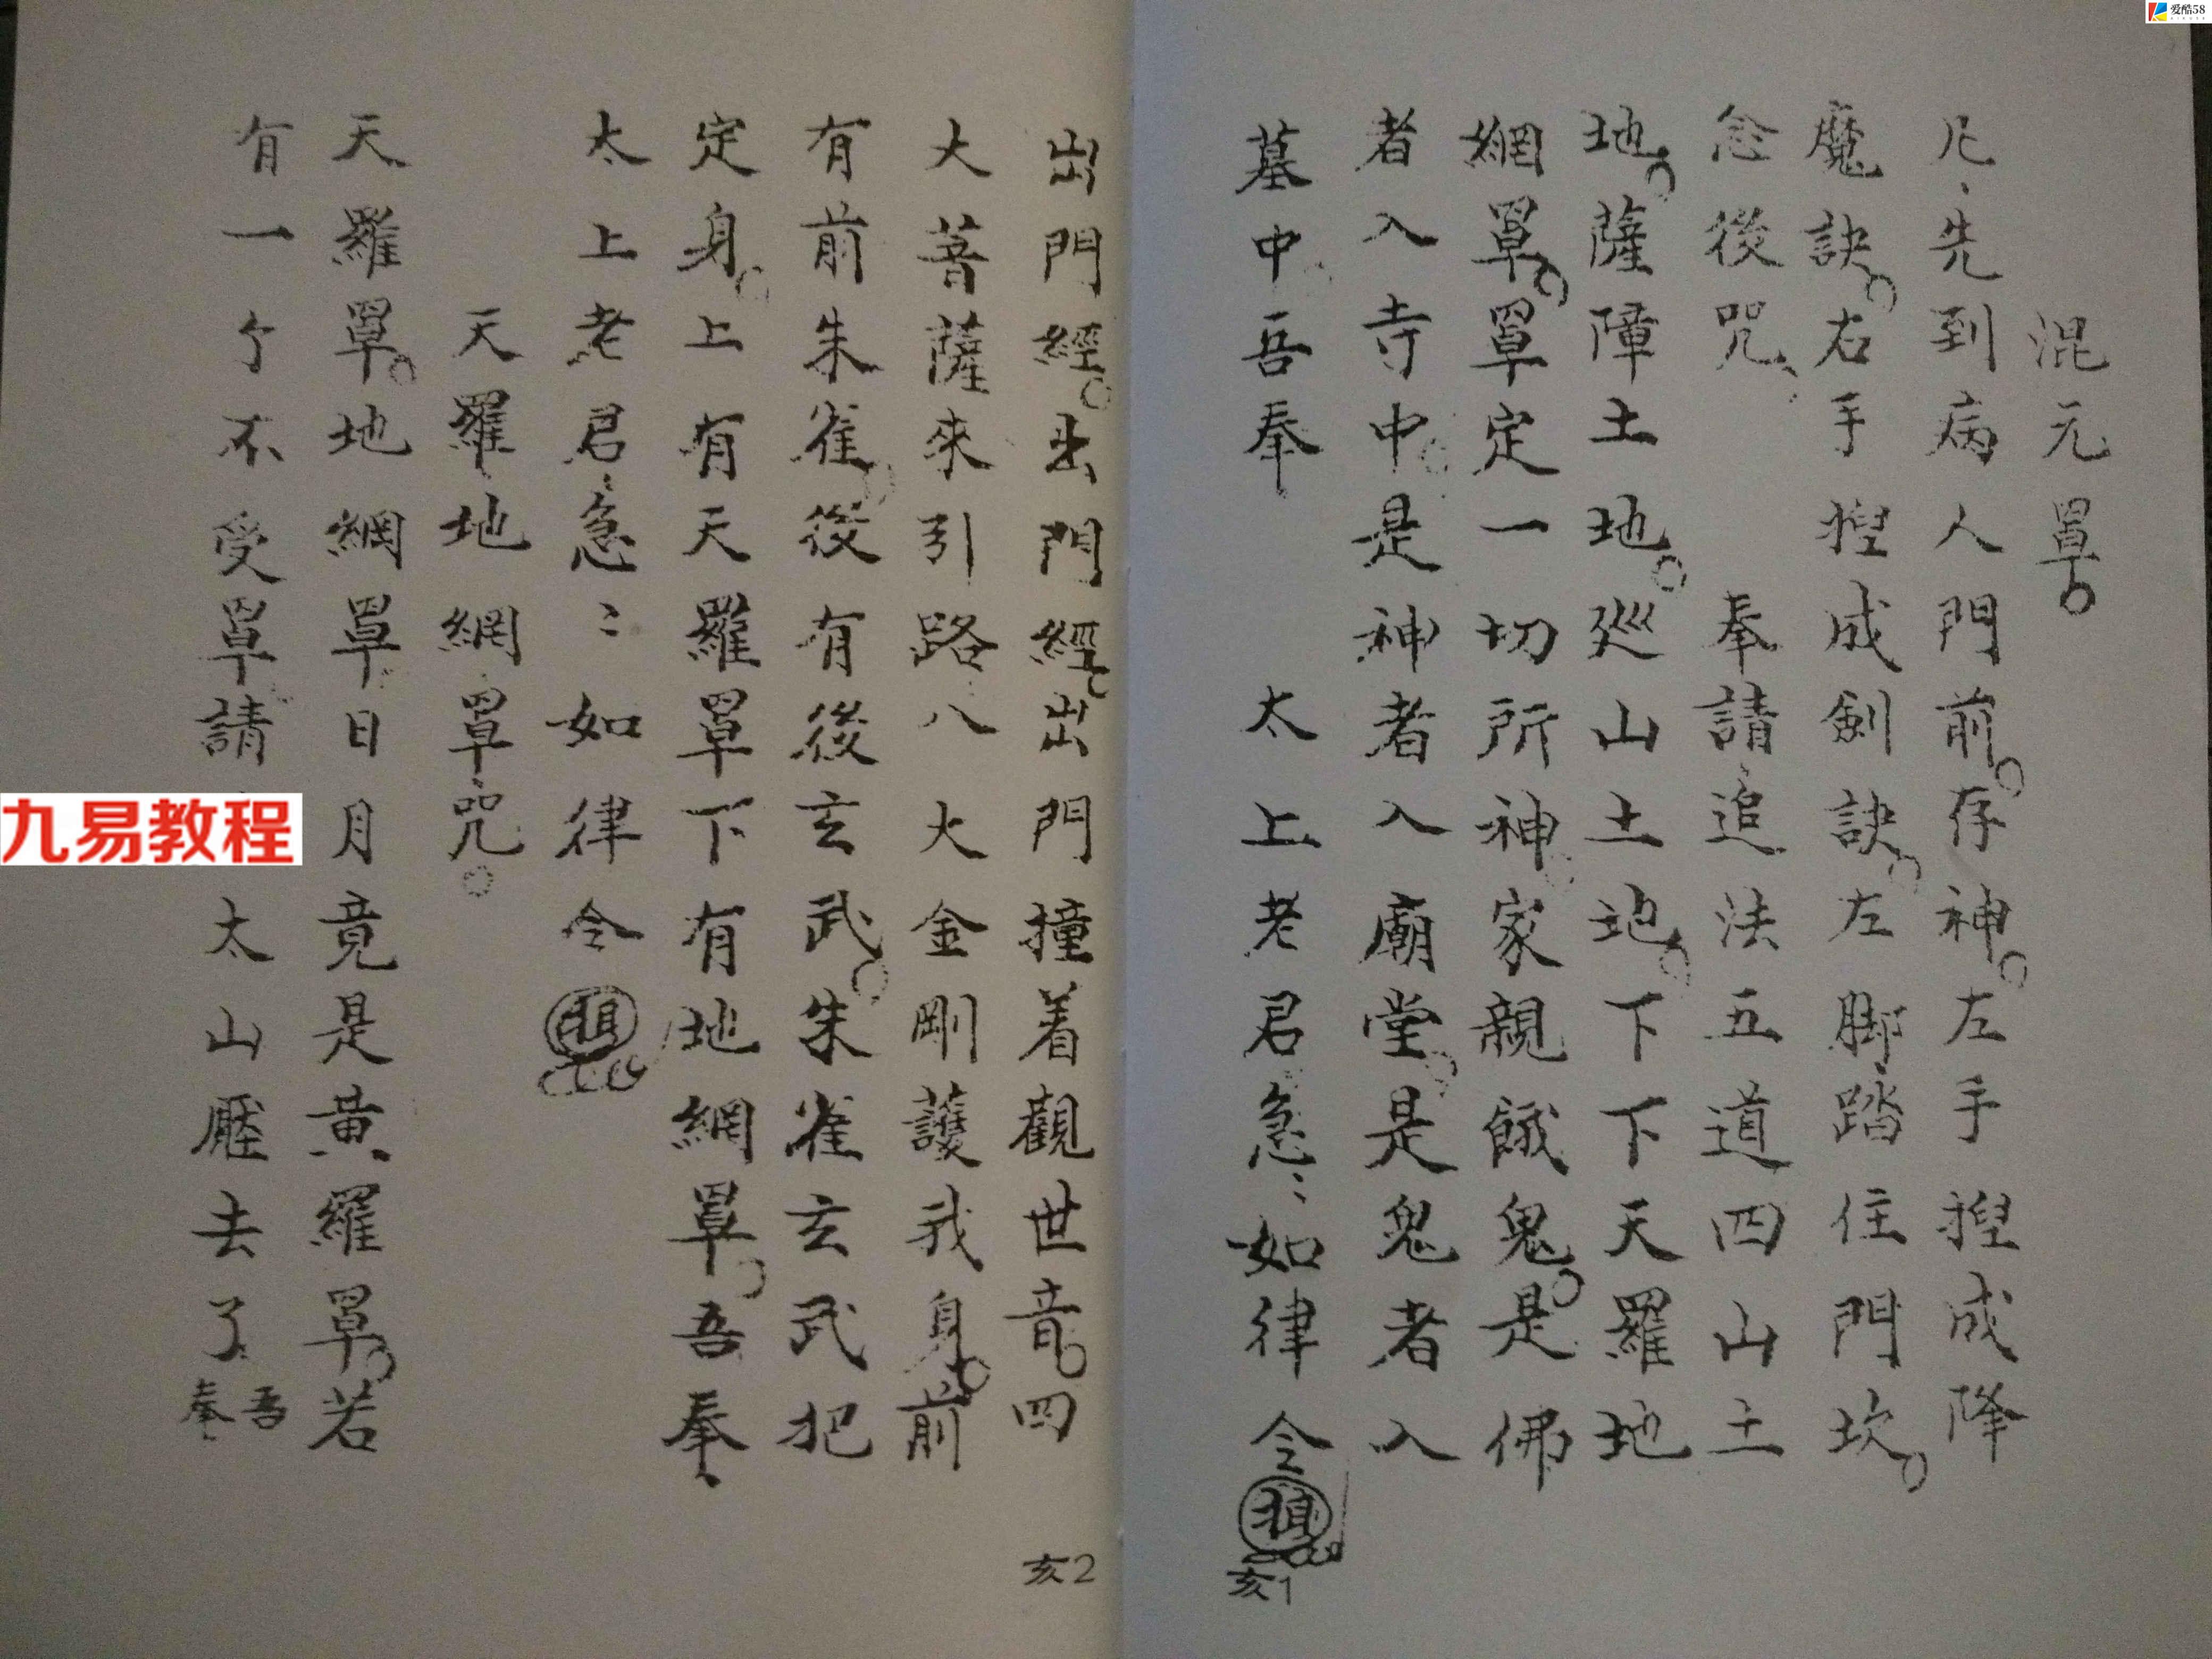 混元罩
凡先到病人門前存神左手揑成降
魔訣右手揑成劍訣左脚踏住門坎
念後咒 奉請追法五道四山土
地薩障土地巡山土地下下天羅地
網罩罩定一切所神家親餓鬼是佛
者入寺中是神者入廟堂是鬼者入
墓中吾奉 太上老君急〻如律令
亥1
出門經出門經出門撞着觀世音四
大菩薩來引路八大金剛護我身前
有前朱雀後有後玄武朱雀玄武把
定身上有天羅罩下有地網罩吾奉
太上老君急〻如律令
天羅地網罩咒
天羅罩地網罩日月竟是黃羅罩若
有一个不受罩請 太山壓去了吾奉
亥2
九易教程
爱酷58